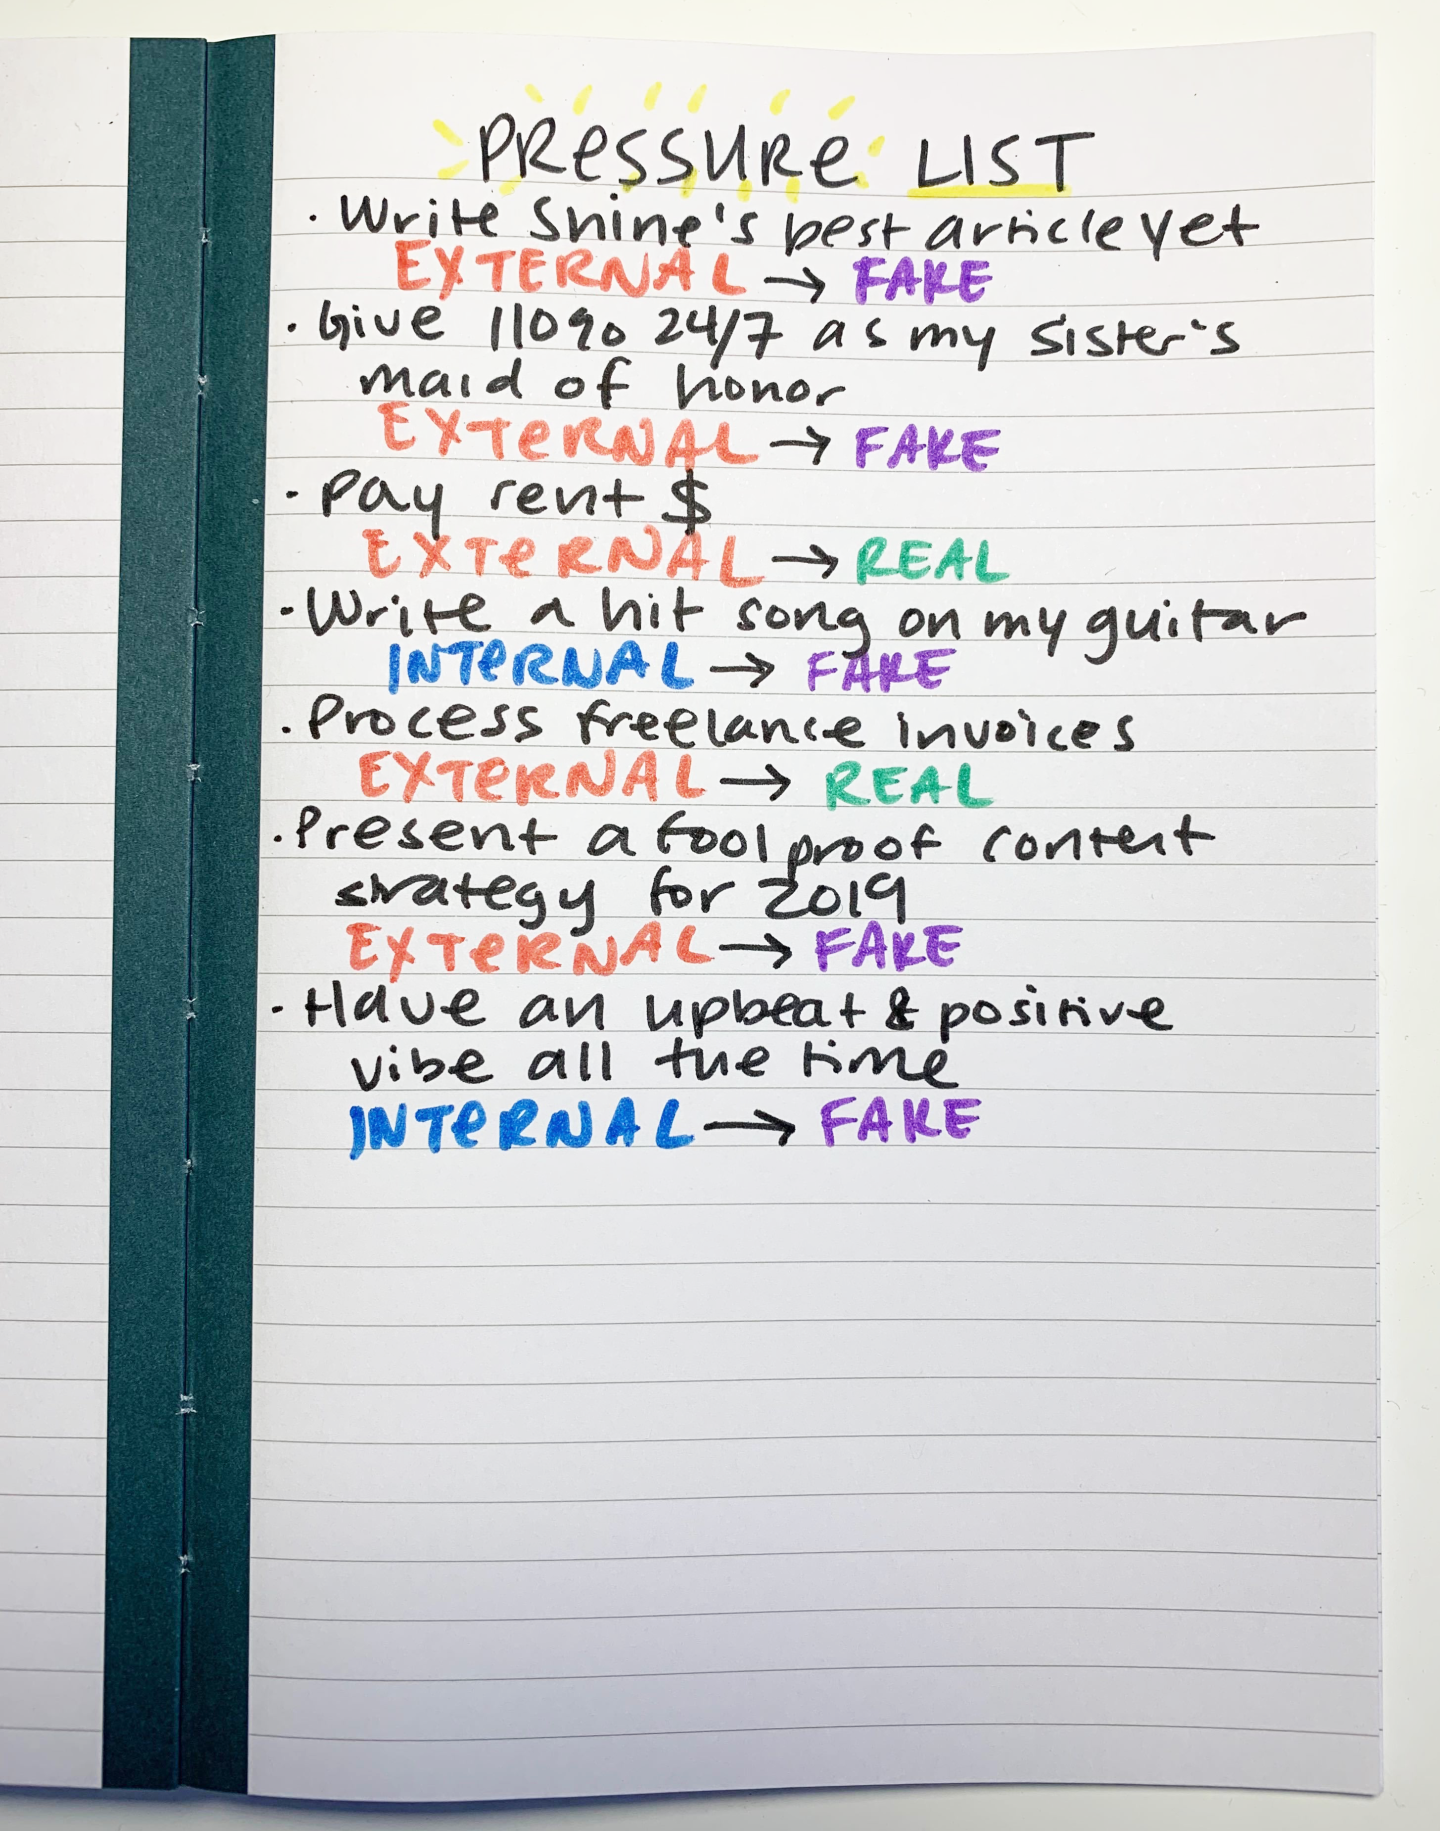 PRESSURE LIST
· Write Shine's best article yet
EXTERNAL → FAKE
· Give 110% 24/7 as my sister's
maid of honor
EXTERNAL → FAKE
· Pay rent $
EXTERNAL → REAL
· Write a hit song on my guitar
INTERNAL → FAKE
· Process freelance invoices
EXTERNAL → REAL
· Present a foolproof content
strategy for 2019
EXTERNAL → FAKE
· Have an upbeat & positive
vibe all the time
INTERNAL → FAKE